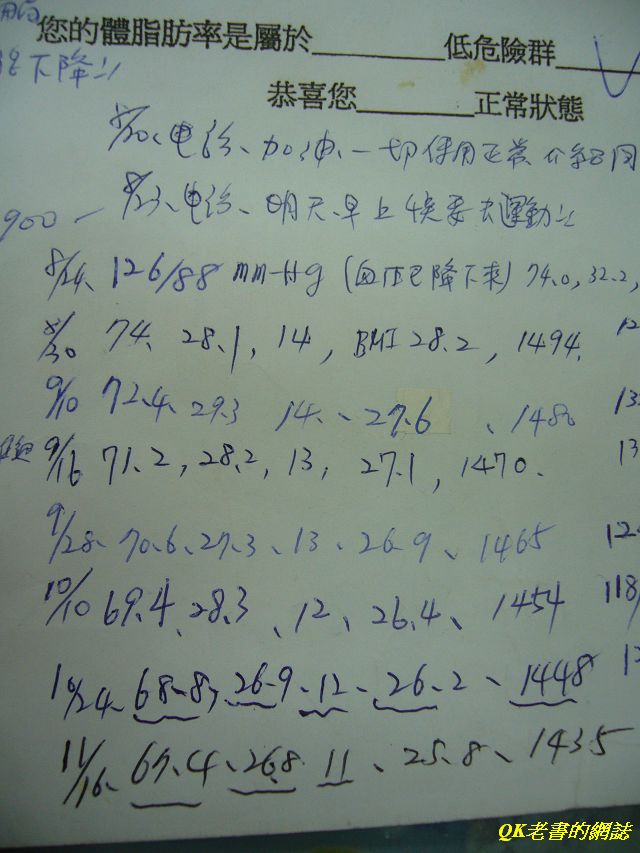 您的體脂肪率是屬於________低危險群____
下降
恭喜您________正常狀態
8/20、电診、加油、一切使用正常
900-
8/23、电診、明天早上快要去運動
8/24、126/88 mm-Hg (血压已降下來) 74.0, 32.2,
8/30 74、28.1, 14, BMI 28.2, 1494.
9/10 72.4、29.3 14、、27.6、1480 13
9/16 71.2, 28.2, 13, 27.1, 1470. 13
9/28、70.6、27.3、13、26.9、1465 12
10/10 69.4、28.3、12、26.4、1454 118/
10/24、68.8、26.9、12、26.2、1448
11/16、67.4、26.8 11、25.8、1435
QK老書的網誌